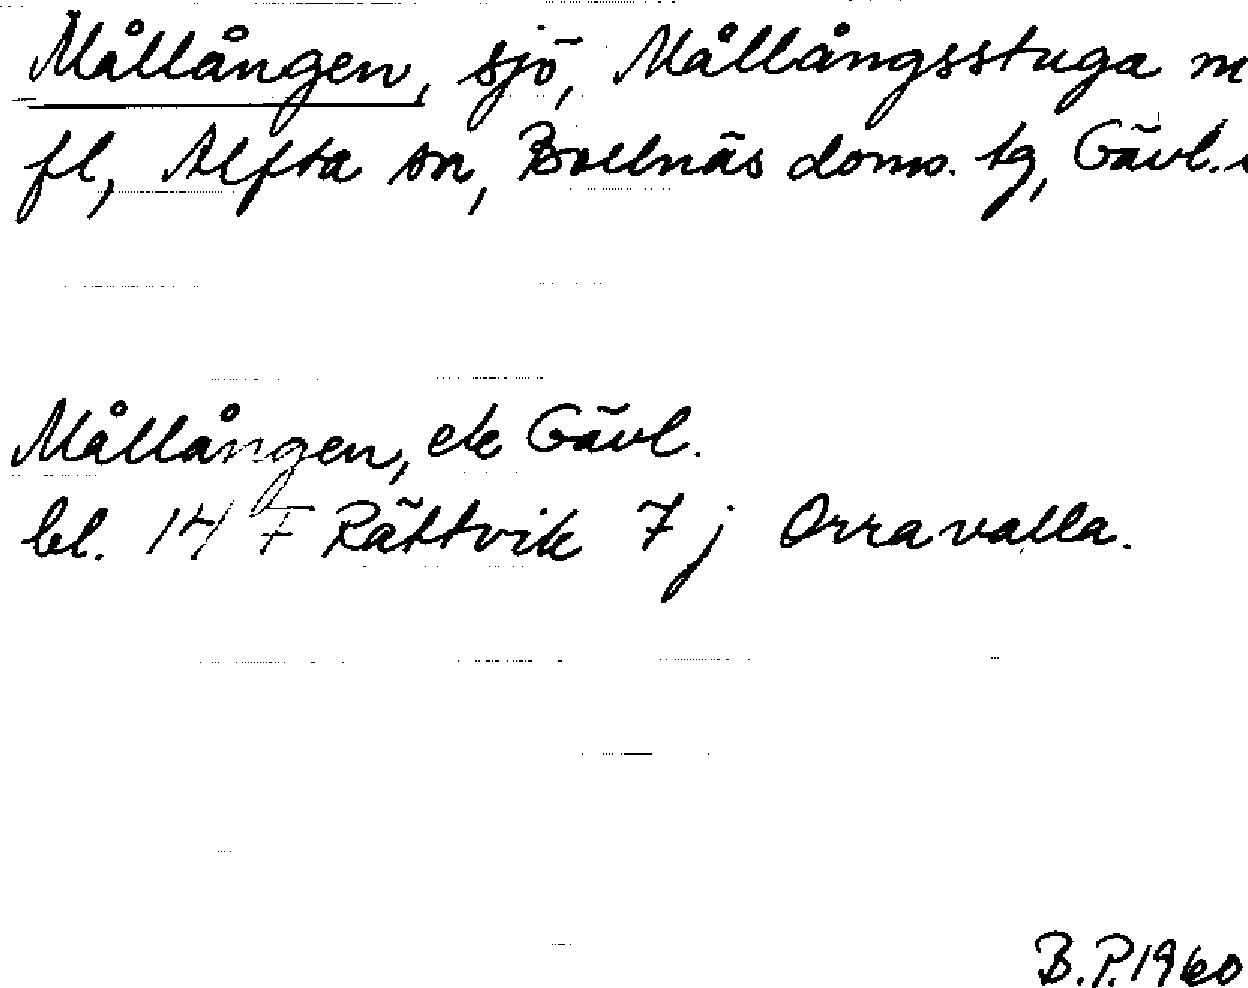 Mållången, sjö, Mållångsstuga m
fl, Alfta sn, Bollnäs doms. tg, Gävl.
Mållången, ek Gävl.
bl. 14 F Rättvik 7 j Orravalla.
B.P. 1960